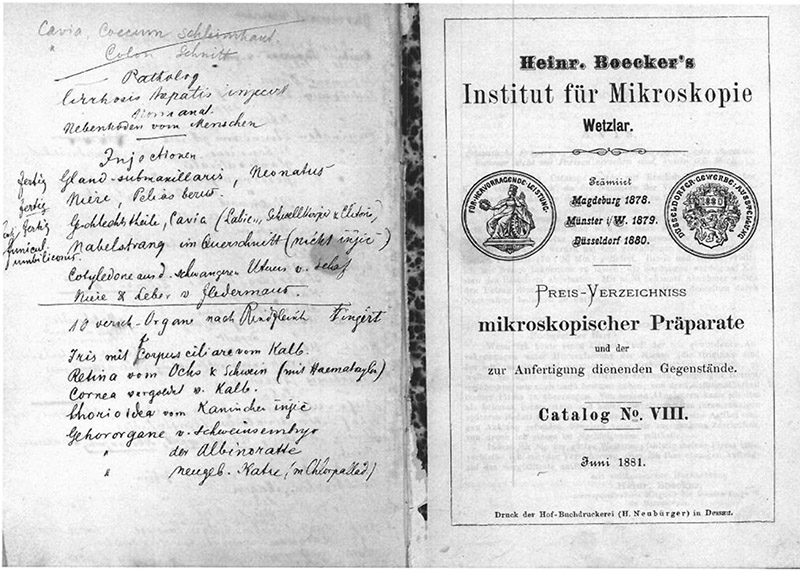 Cavia, Coecum Schleimhaut.
" Colon Schnitt
Patholog
Cirrhosis hepatis injicirt
Nebenhoden vom Menschen
Injectionen
fertig Gland-submaxillaris, Neonatus
fertig Niere, Pelias berus.
fertig Geschlechtstheile, Cavia (Labien, Schwellkörper & Clitoris,
Funicul. umbilicus. Nabelstrang im Querschnitt (nicht injic)
Cotyledone aus d. schwangeren Uterus v. Schaf
Niere & Leber v Fledermaus.
10 versch. Organe nach
Iris mit Corpus ciliare vom Kalb.
Retina vom Ochs & Schwein (mit Haematoxylin)
Cornea vergoldet v. Kalb.
Chorioidea vom Kaninchen injic
Gehörorgane v. Schweinsembryo
" der Albinoratte
" neugeb. Katze (m Chlorpallad)
Heinr. Boecker's
Institut für Mikroskopie
Wetzlar.
FÜR HERVORRAGENDE LEISTUNG.
Prämiirt
Magdeburg 1878.
Münster i/W. 1879.
Düsseldorf 1880.
DÜSSELDORFER GEWERBE-AUSSTELLUNG
1880
PREIS-VERZEICHNISS
mikroskopischer Präparate
und der
zur Anfertigung dienenden Gegenstände.
Catalog No. VIII.
Juni 1881.
Druck der Hof-Buchdruckerei (H. Neubürger) in Dessau.